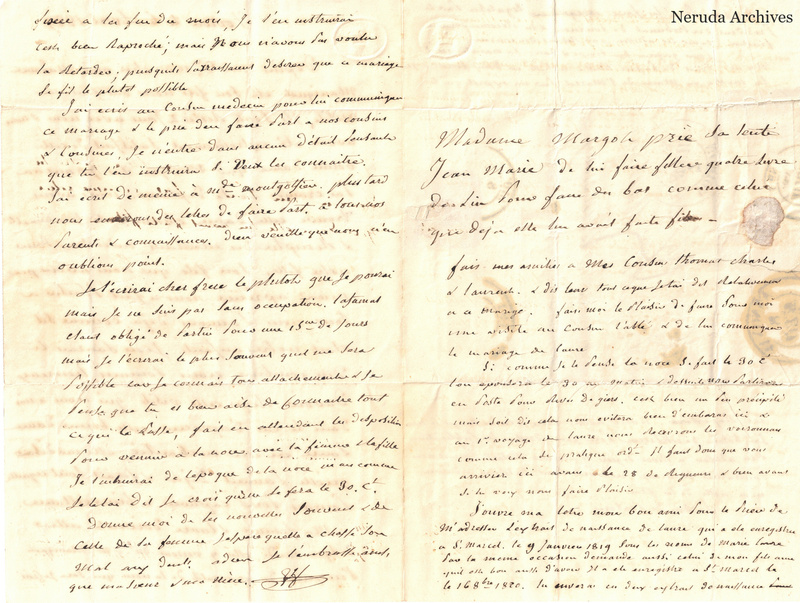 Neruda Archives
fixée a la fin du mois, Je t'en instruirai
c'est bien Raproché; mais Nous n'avons pas voulu
la Retarder; puisquils paraissaient desirer que ce mariage
se fit le plutot possible
J'ai ecris au Cousin medecin pour lui communiquer
ce mariage & le prie d'en faire Part a nos cousins
& Cousines. Je n'entre dans aucun détail Pensant
que tu l'en instruira s'il veut les connaitre.
J'ai ecrit de même à mde montgolfier. plus tard
nous enverrons des letres de faire Part à tous nos
Parents & connaissances. dieu veuille que nous n'en
oublions point.
Je t'écrirai cher frere le plutot que Je pourai
mais Je ne suis pas sans occupation.
etant obligé de Partir Pour une 15ne de Jours
mais Je t'écrirai le plus souvent quil me sera
Possible car Je connais ton attachement & Je
Pense que tu es bien aise de Connaitre tout
ce qui se Passe, fait en attendant tes disposition
Pour venir a la noce avec ta femme & ta fille
Je t'instruirai de l'epoque de la noce mais comme
Je te l'ai dit Je crois qu'elle se fera le 30. Ct.
Donne moi de tes nouvelles Souvent & de
Celle de ta femme J'espere quelle a chassé son
Mal aux dents. adieu Je t'embrasse ainsi
que ma soeur & ma niece.
Madame Margot prie sa tente
Jean Marie de lui faire fillere quatre livre
de lin Pour faire des bas comme celui
que deja elle lui avait faite filer
fais mes amities a Mes Cousin thomas charles
& laurent. & dis leur tout ce que Je t'ai dit Relativement
a a Margo. fais moi le Plaisir de faire Pour moi
une visite au Cousin l'abbé & de lui communiquer
le mariage de laure
Si comme Je le Pense la noce se fait le 30 Ct
l'on epousera le 30 au Matin & de suite nous Partirons
en Poste Pour Rive de giers. c'est bien un peu précipité
mais soit dit cela nous evitera bien d'embaras ici &
au 1er voyage de laure nous Recevrons les
comme cela se pratique ordre Il faut donc que vous
arriviez ici avant le 28 de Rigueur & bien avant
si tu veux nous faire Plaisir
J'ouvre ma letre mon bon ami Pour te Prier de
M'adresser l'extrait de naissance de laure qui a ete enregistré
a St. Marcel. le 9 Janvier 1819 sous les noms de Marie laure
Par la meme occasion demande aussi celui de mon fils aine
quil est bon aussi d'avoir Il a ete enregistré a St. Marcel le
le 16 8bre 1820. Tu enverras en deux extrait de naissance